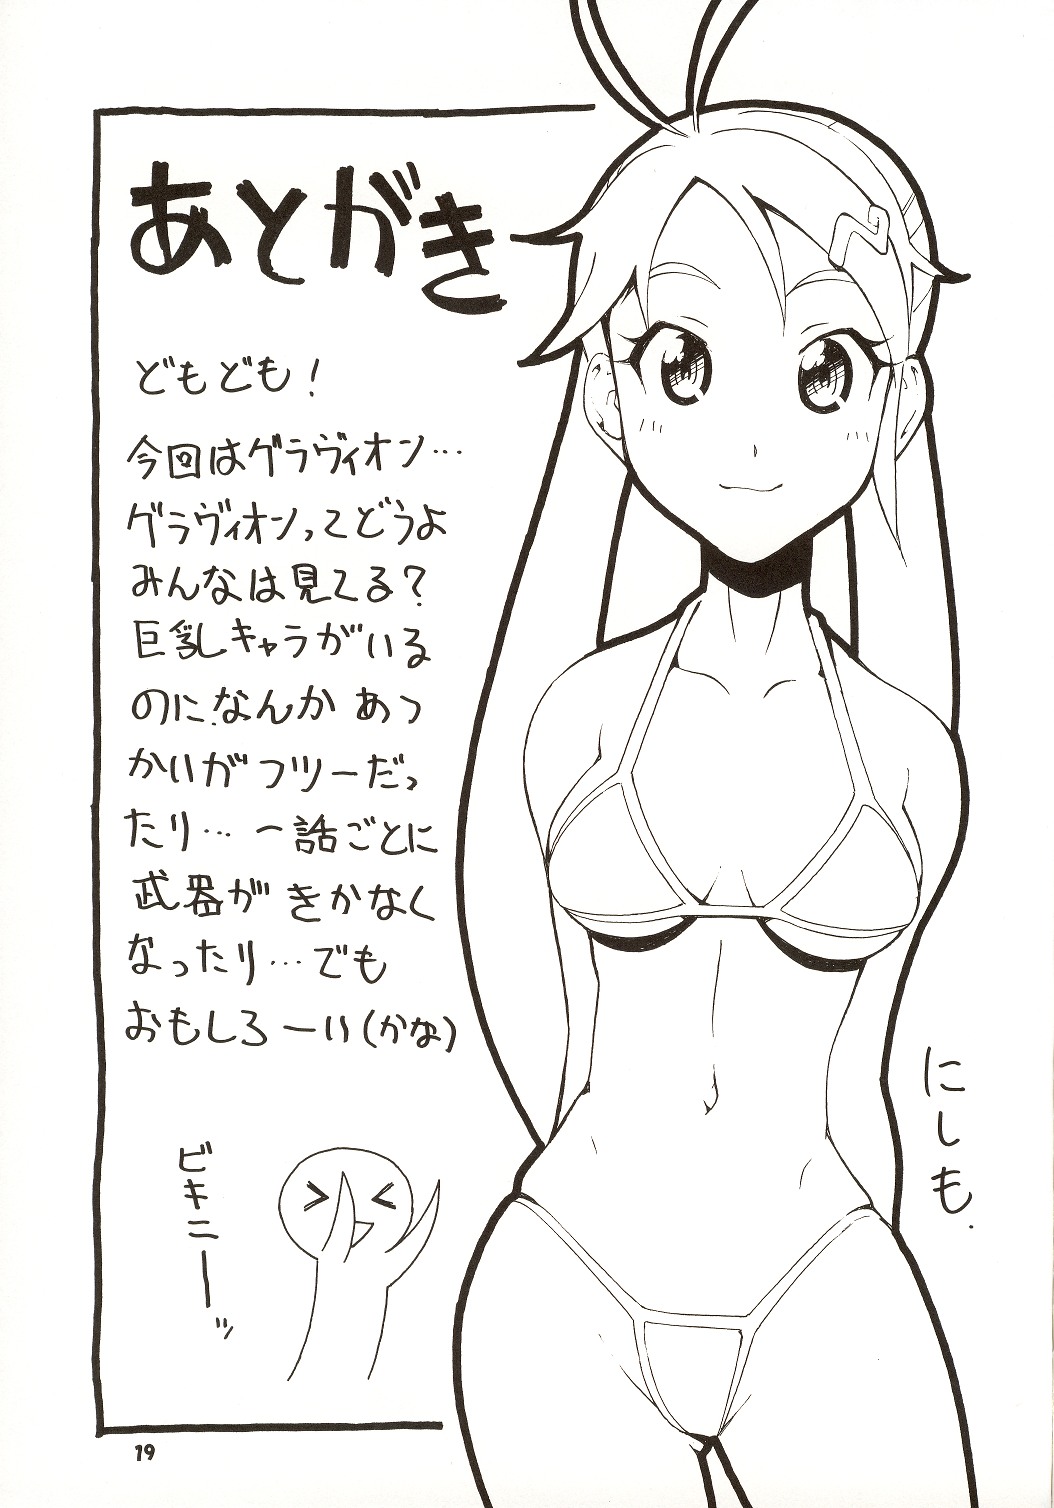 あとがき
どもども!
今回はグラヴィオン…
グラヴィオンってどうよ
みんなは見てる?
巨乳キャラがいる
のになんかあつ
かいがフツーだっ
たり…一話ごとに
武器がきかなく
なったり…でも
おもしろーい(かな)
ビキニーッ
にしも.
19